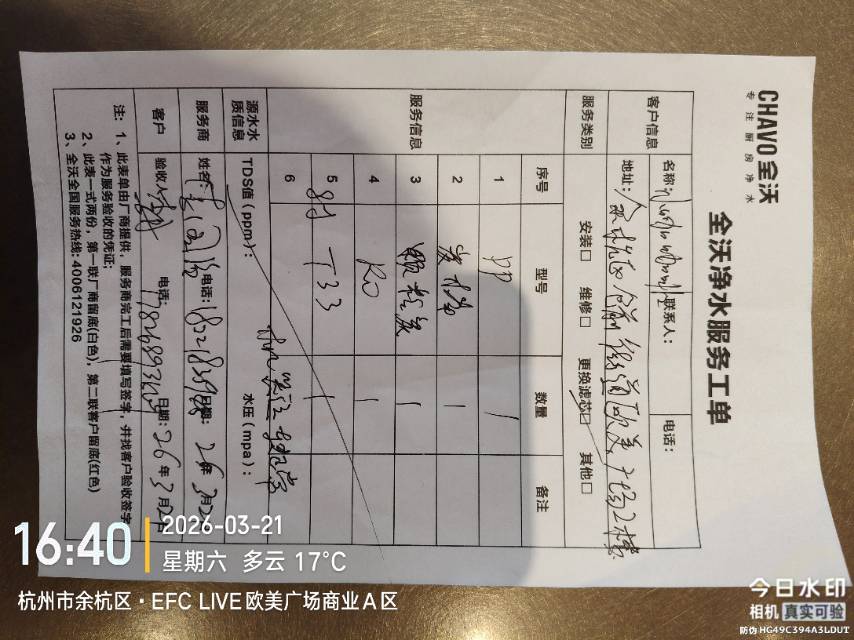 CHAVO全沃
专注厨房净水
全沃净水服务工单
客户信息
名称:
联系人:
电话:
地址:余杭区仓前街道欧美广场2楼
服务类别
安装□ 维修□ 更换滤芯☑ 其他□
服务信息
序号 型号 数量 备注
1 PP 1
2 炭棒 1
3 颗粒炭 1
4 RO 1
5 T33 1
6
源水水质信息
TDS值(ppm):
水压(mpa):
服务商
姓名:
电话:
日期:26年3月
客户
验收人:
电话:
日期:26年3月
注:1、此表单由厂商提供,服务商完工后需要填写签字,并找客户验收签字
作为服务验收的凭证;
2、此表一式两份,第一联厂商留底(白色),第二联客户留底(红色)
3、全沃全国服务热线:4006121926
16:40
2026-03-21
星期六 多云 17°C
杭州市余杭区·EFC LIVE欧美广场商业A区
今日水印
相机 真实可验
防伪 HG49C394A3LDUT